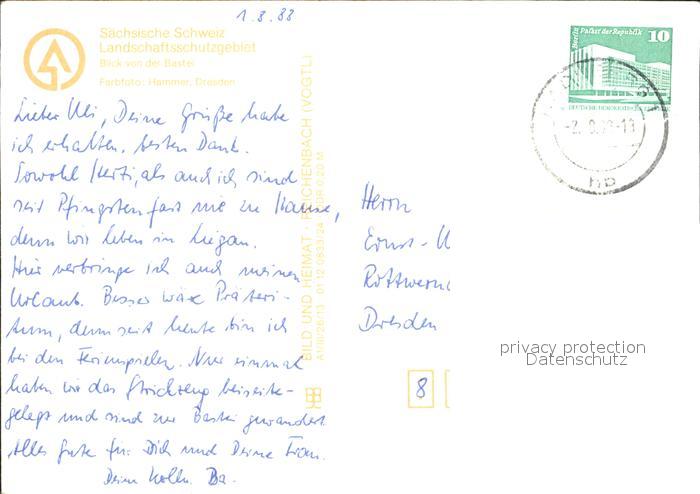 1.8.88
Sächsische Schweiz
Landschaftsschutzgebiet
Blick von der Bastei
Farbfoto: Hammer, Dresden
Lieber Uli, Deine Grüße habe
ich erhalten, besten Dank.
Sowohl Kerti, als auch ich sind
seit Pfingsten fast nie zu Hause,
denn wir leben in Liegau.
Hier verbringe ich auch meinen
Urlaub. Besser wäre Präteri-
tum, denn seit heute bin ich
bei den Ferienspielen. Nur einmal
haben wir das Strickzeug beiseite-
gelegt und sind zur Bastei gewandert.
Alles Gute für Dich und Deine Frau.
Deine Kolln. Ba.
BILD UND HEIMAT · REICHENBACH (VOGTL)
A1/III/26/13 01 12 0833/24 M
Berlin Palast der Republik
10
DEUTSCHE DEMOKRATISCHE
-2.8.88-18
hb
Herrn
Ernst-U
Rottwernd
Dresden
8
privacy protection
Datenschutz